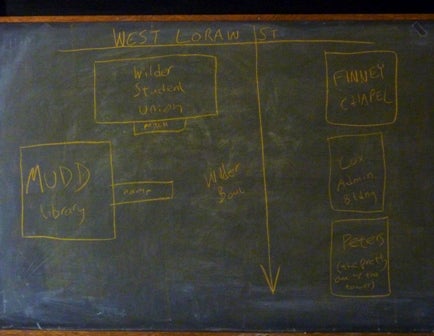 WEST LORAW ST
Wilder
Student
Union
porch
FINNEY
CHAPEL
MUDD
library
ramp
Wilder
Bowl
Cox
Admin
Bldng
Peters
(the pretty
one w/ the
tower)